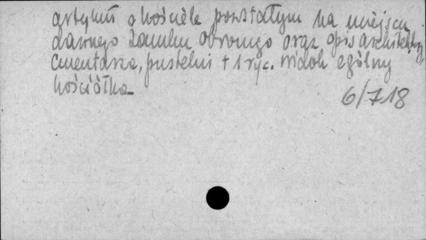 artykuł o kościele powstałym na miejscu
dawnego zamku obronnego oraz opis architektury
cmentarza, pustelni + 1 ryc. widok ogólny
kościółka
6/718